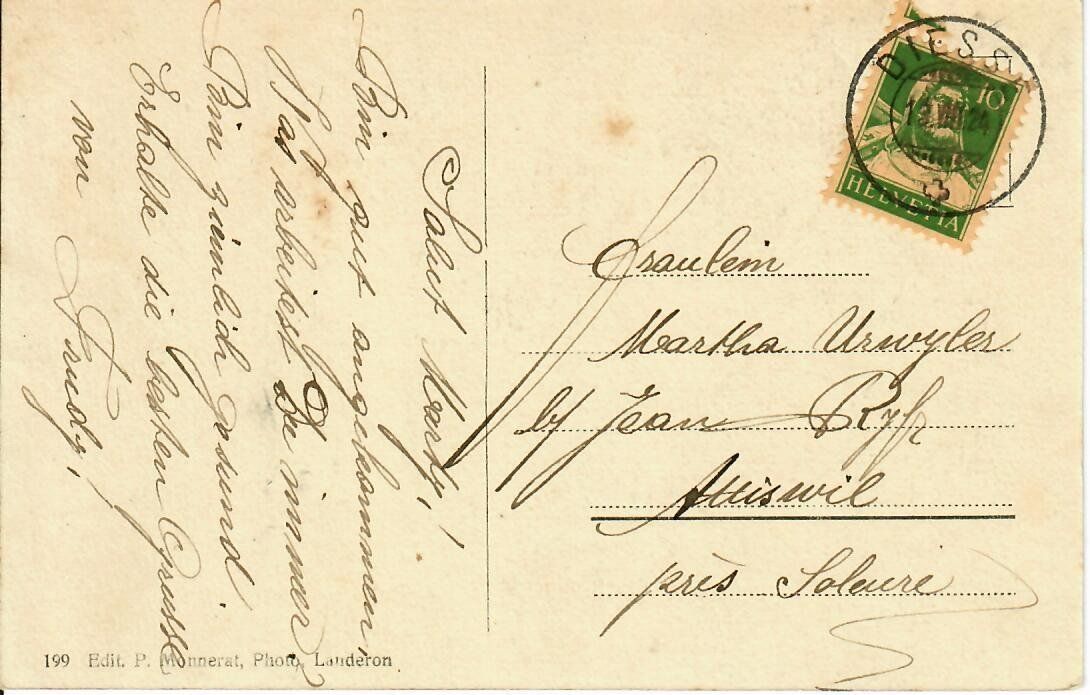 Salut Marty!
Bin gut angekommen,
Was arbeitest Du immer?
Bin ziemlich gesund
Erhalte die besten Grüsse
von Trudy!
Fraulein
Martha Urwyler
b/ Jean Ryf
Attiswil
près Soleure
DIESSE
24
10
HELVETIA
199 Edit. P. Monnerat, Photo, Landeron